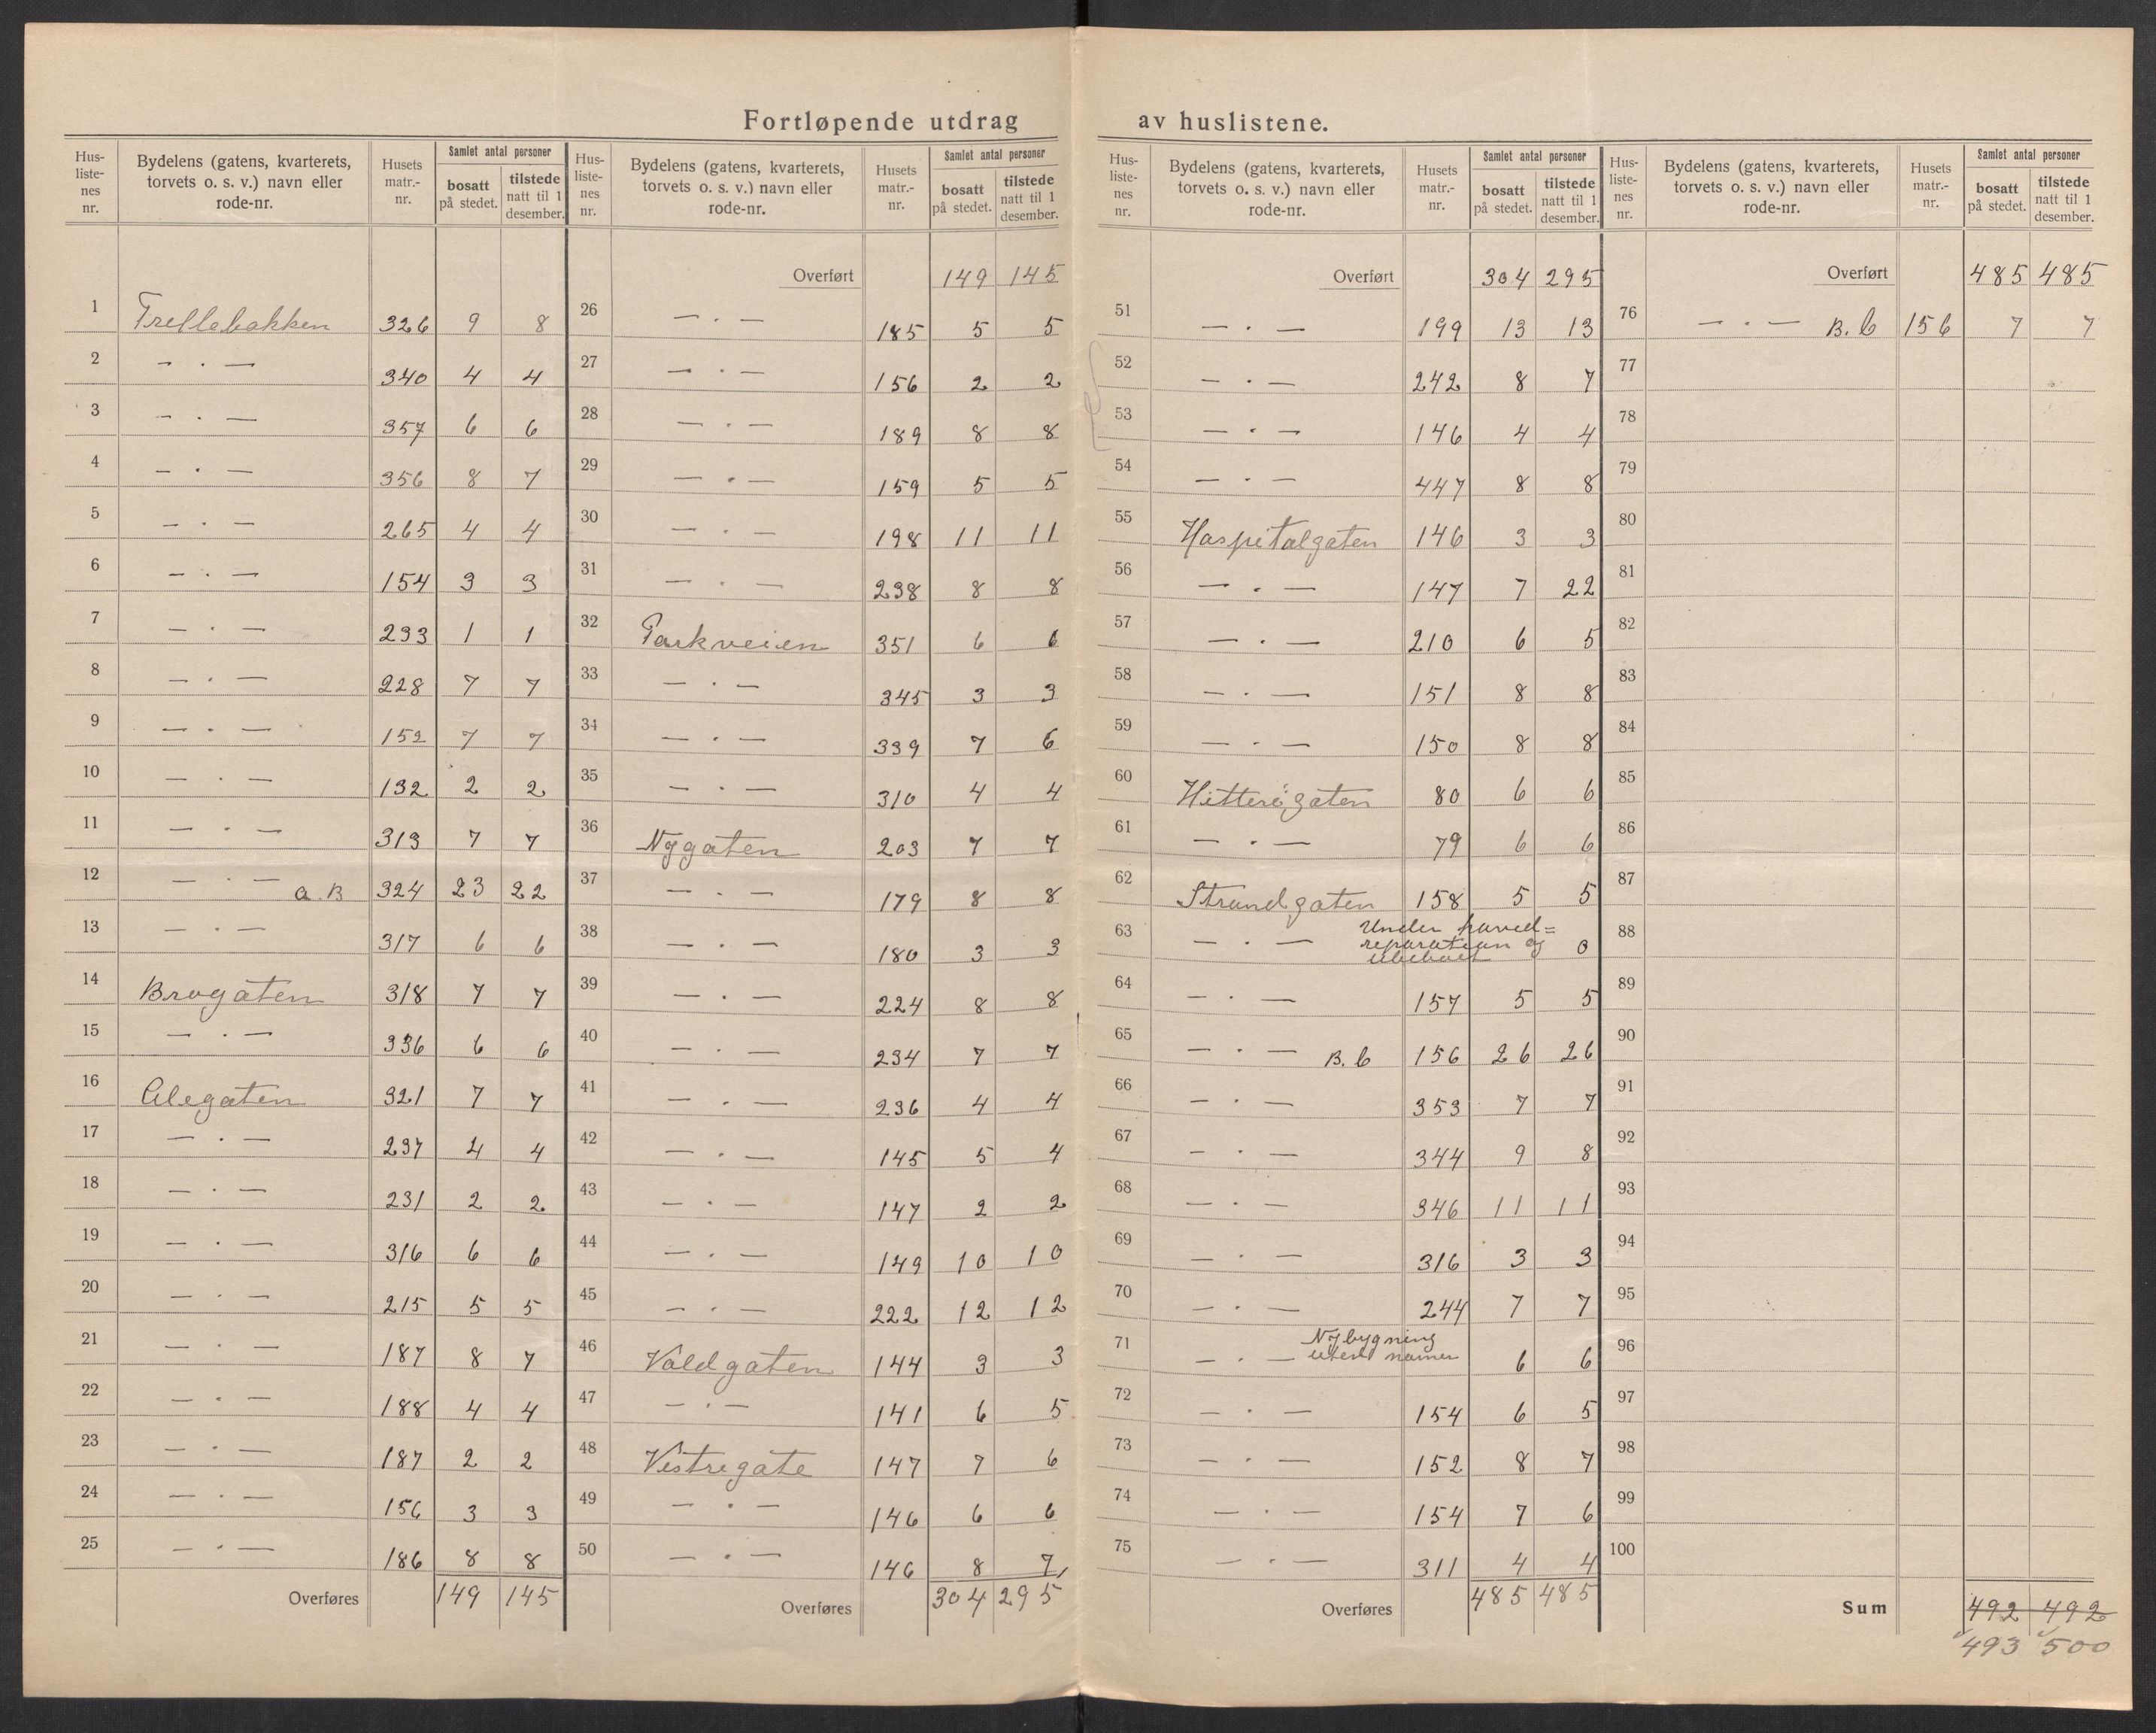 Fortløpende utdrag av huslistene.
Hus-liste-nes nr. | Bydelens (gatens, kvarterets, torvets o. s. v.) navn eller rode-nr. | Husets matr.-nr. | Samlet antal personer bosatt på stedet. | tilstede natt til 1 desember.
1 Trellebakken 326 9 8
2 — · — 340 4 4
3 — · — 357 6 6
4 — · — 356 8 7
5 — · — 265 4 4
6 — · — 154 3 3
7 — · — 233 1 1
8 — · — 228 7 7
9 — · — 152 7 7
10 — · — 132 2 2
11 — · — 313 7 7
12 — · — a. B 324 23 22
13 — · — 317 6 6
14 Brogaten 318 7 7
15 — · — 336 6 6
16 Alegaten 321 7 7
17 — · — 237 4 4
18 — · — 231 2 2
19 — · — 316 6 6
20 — · — 215 5 5
21 — · — 187 8 7
22 — · — 188 4 4
23 — · — 187 2 2
24 — · — 156 3 3
25 — · — 186 8 8
Overføres 149 145
Hus-liste-nes nr. | Bydelens (gatens, kvarterets, torvets o. s. v.) navn eller rode-nr. | Husets matr.-nr. | Samlet antal personer bosatt på stedet. | tilstede natt til 1 desember.
Overført 149 145
26 — · — 185 5 5
27 — · — 156 2 2
28 — · — 189 8 8
29 — · — 159 5 5
30 — · — 198 11 11
31 — · — 238 8 8
32 Parkveien 351 6 6
33 — · — 345 3 3
34 — · — 339 7 6
35 — · — 310 4 4
36 Nygaten 203 7 7
37 — · — 179 8 8
38 — · — 180 3 3
39 — · — 224 8 8
40 — · — 234 7 7
41 — · — 236 4 4
42 — · — 145 5 4
43 — · — 147 2 2
44 — · — 149 10 10
45 — · — 222 12 12
46 Voldgaten 144 3 3
47 — · — 141 6 5
48 Vestregate 147 7 6
49 — · — 146 6 6
50 — · — 146 8 7
Overføres 304 295
Hus-liste-nes nr. | Bydelens (gatens, kvarterets, torvets o. s. v.) navn eller rode-nr. | Husets matr.-nr. | Samlet antal personer bosatt på stedet. | tilstede natt til 1 desember.
Overført 304 295
51 — · — 199 13 13
52 — · — 242 8 7
53 — · — 146 4 4
54 — · — 447 8 8
55 Hospitalgaten 146 3 3
56 — · — 147 7 22
57 — · — 210 6 5
58 — · — 151 8 8
59 — · — 150 8 8
60 Hitterøgaten 80 6 6
61 — · — 79 6 6
62 Strandgaten 158 5 5
63 — · — Under hoved=
reparation og 0
ubeboet
64 — · — 157 5 5
65 — · — B. C 156 26 26
66 — · — 353 7 7
67 — · — 344 9 8
68 — · — 346 11 11
69 — · — 316 3 3
70 — · — 244 7 7
71 — · — Nybygning
uten numer 6 6
72 — · — 154 6 5
73 — · — 152 8 7
74 — · — 154 7 6
75 — · — 311 4 4
Overføres 485 485
Hus-liste-nes nr. | Bydelens (gatens, kvarterets, torvets o. s. v.) navn eller rode-nr. | Husets matr.-nr. | Samlet antal personer bosatt på stedet. | tilstede natt til 1 desember.
Overført 485 485
76 — · — B. C 156 7 7
77
78
79
80
81
82
83
84
85
86
87
88
89
90
91
92
93
94
95
96
97
98
99
100
Sum 492 492
493 500